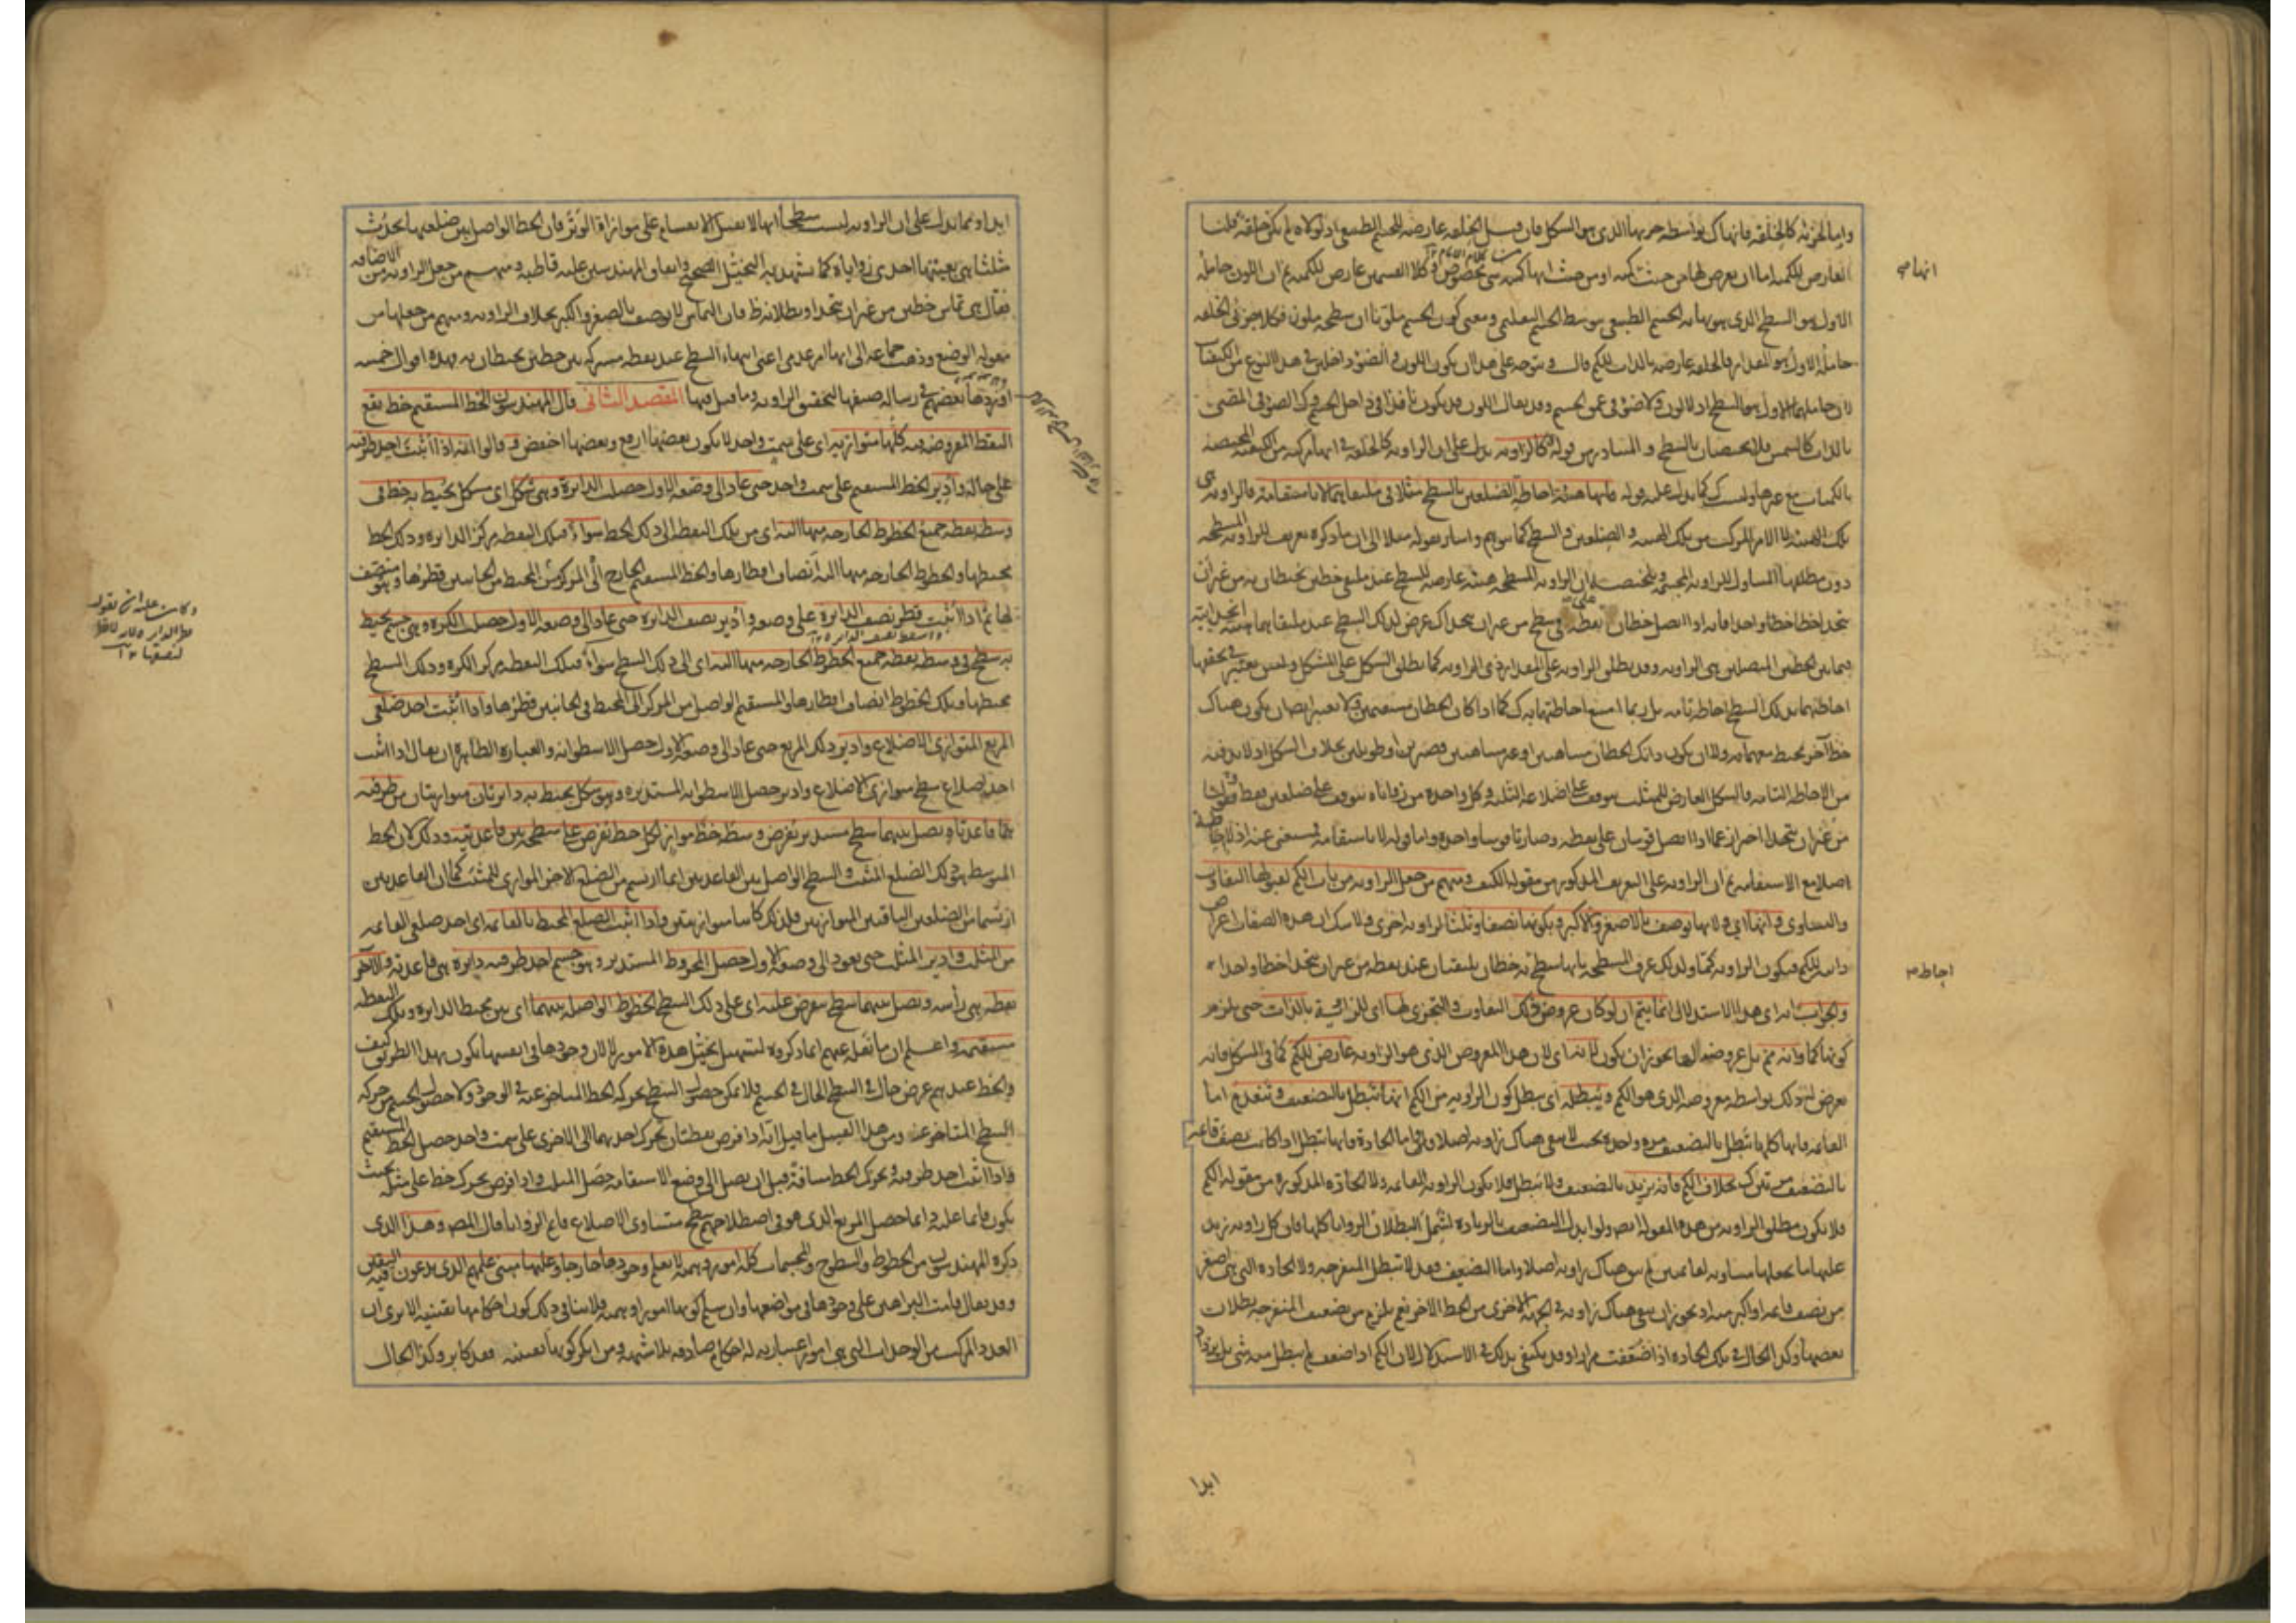 واما الجزئية كالخلقة فانها ك بواسطة جزئها الذى هو الشكل فان قيل الخلقة عارضة للجسم الطبيعى اذ لولاه لم يكن خلقة قلنا
العارض للكمية اما ان يعرض لها من حيث انها كمية او من حيث انها كمية شى مخصوص وكلا القسمين عارض للكمية ثم ان اللون حامله
الاول هو السطح الذى هو نهاية الجسم الطبيعى بتوسط الجسم التعليمى ومعنى كون الجسم ملونا ان سطحه ملون فكلا جزئى الخلقة
حامله الاول هو المقدار فالخلقة عارضة بالذات للكم قال ويتوجه على هذا ان يكون اللون والضوء داخلين فى هذا النوع من الكيفيات
لان حاملهما الاول هو السطح اذ لا لون ولا ضوء فى عمق الجسم وقد يقال اللون قد يكون نافذا فى داخل الجسم وك الضوء فى المضى
بالذات كالشمس فلا يختصان بالسطح و المتبادر من قوله وكالزاوية يدل على ان الزاوية كالخلقة فى انها مركبة من الكيفية المختصة
بالكميات مع غيرها وليست ك كما يدل عليه قوله فانها هيئة احاطة الضلعين بالسطح مثلا فى ملتقاهما لا باستقامة فالزاوية هى
تلك الهيئة لا الامر المركب من تلك الهيئة و الضلعين والسطح كما توهم واشار بقوله مثلا الى ان ما ذكره تعريف للزاوية المسطحة
دون مطلقها المتناول للزاوية المجسمة وتلخيصه ان الزاوية المسطحة هيئة عارضة للسطح عند ملتقى خطين يحيطان به من غير ان
يتحدا خطا واحدا فانه اذا اتصل خطان على نقطة فى سطح من غير ان يتحدا ك عرض لذلك السطح عند ملتقاهما هيئة انحدابية
فيما بين الخطين المتصلين هى الزاوية وقد يطلق الزاوية على المقدار ذى الزاوية كما يطلق الشكل على المشكل وليس يعتبر فى تحققها
احاطتهما بذلك السطح احاطة تامة بل ربما امتنع احاطتهما به ك كما اذا كان الخطان مستقيمين ولا يعتبر ايضا ان يكون هناك
خط آخر يحيط معهما به ولا ان يكون ذانك الخطان متناهيين او غير متناهيين قصيرين او طويلين بخلاف الشكل اذ لا بد فيه
من الاحاطة التامة فالشكل العارض للمثلث يتوقف على اضلاعه الثلثة وكل واحدة من زواياه يتوقف على ضلعين فقط وقولنا
من غير ان يتحدا احتراز عما اذا اتصل قوسان على نقطة وصارتا قوسا واحدة واما قوله لا باستقامة فمستغنى عنه اذ لا احاطة
اصلا مع الاستقامة ثم ان الزاوية على التعريف المذكور من مقولة الكيف ومنهم من جعل الزاوية من باب الكم لقبولها التفاوت
والتساوى ولانها اى ولانها توصف بالاصغر والاكبر وبكونها نصفا وثلثا لزاوية اخرى ولا شك ان هذه الصفات اعراض
ذاتية للكم فيكون الزاوية كما ولذلك عرف المسطحة بانها سطح يه خطان يلتقيان عند نقطة من غير ان يتحدا خطا واحدا
والجواب انه اى هذا الاستدلال انما يتم ان لو كان عروض ذلك التفاوت والتجزى لها اى للزاوية بالذات حتى يلزم
كونها كما وانه مم بل عروضه لها يجوز ان يكون لانها اى لان هذا المعروض الذى هو الزاوية عارض للكم كما فى الشكل فانه
يعرض له ذلك بواسطة معروضه الذى هو الكم ويبطله اى يبطل كون الزاوية من الكم انها تبطل بالتضعيف وتنعدم اما
القائمة فانها كلها تبطل بالتضعيف مرة واحدة بحيث لا يبقى هناك زاوية اصلا واما الحادة فانها تبطل اذا كانت نصف قائمة
بالتضعيف مرتين ك بخلاف الكم فانه يزيد بالتضعيف ولا يبطل فلا يكون الزاوية القائمة ولا الحادة المذكورة من مقولة الكم
فلا يكون مطلق الزاوية من هذه المقولة ايضا ولو ابدل التضعيف بالزيادة لشمل البطلان الزوايا كلها فان كل زاوية زيد
عليها ما يجعلها مساوية لقائمتين لم يبق هناك زاوية اصلا واما التضعيف فقد لا تبطل المنفرجة ولا الحادة التى هى اصغر
من نصف قائمة او اكبر منه اذ يجوز ان يبقى هناك زاوية فى الجهة الاخرى من الخط الآخر نعم يلزم من تضعيف المنفرجة بطلان
بعضها وكذا الحال فى تلك الحادة اذا ضعفت مرارا وقد يكتفى بذلك فى الاستدلال لان الكم اذا ضعف لم يبطل منه شى بل يزداد
انها صح
احاطه
ابدا
ابدا ومما يدل على ان الزاوية ليست سطحا انها لا تقبل الانقسام على موازاة الوتر فان الخط الواصل بين ضلعيها يحدث
مثلثا هى بعينها احدى زواياه كما يشهد به التخيل الصحيح واتفاق المهندسين عليه قاطبة ومنهم من جعل الزاوية من الاضافة
فقال هى تماس خطين من غير ان يتحدا وبطلانه ظ فان التماس لا يوصف بالصغر والكبر بخلاف الزاوية ومنهم من جعلها من
مقولة الوضع وذهب جماعة الى انها امر عدمى اعنى انتهاء السطح عند نقطة مشتركة بين خطين يحيطان به وهذه اقوال خمسة
اوردها بعضهم فى رسالة صنفها لتحقيق الزاوية وما قيل فيها المقصد الثانى قال المهندسون الخط المستقيم خط يقع
النقط المفروضة فيه كلها متوازية اى على سمت واحد لا يكون بعضها ارفع وبعضها اخفض و قالوا انه اذا اثبت احد طرفيه
على حاله وادير الخط المستقيم على سمت واحد حتى عاد الى وضعه الاول حصلت الدائرة وهى شكل اى سطح يحيط به خط فى
وسطه نقطة جميع الخطوط الخارجة منها اليه اى من تلك النقطة الى ذلك الخط سواء فتلك النقطة مركز الدائرة وذلك الخط
محيطها والخطوط الخارجة منها اليه انصاف اقطارها والخط المستقيم الخارج الى المركز من المحيط من الجانبين قطرها وهو منصف
لها ثم اذا اثبت قطر نصف الدائرة على وضعه وادير نصف الدائرة حتى عاد الى وضعه الاول حصلت الكرة وهى جسم يحيط
به سطح فى وسطه نقطة جميع الخطوط الخارجة منها اليه اى الى ذلك السطح سواء فتلك النقطة مركز الكرة وذلك السطح
محيطها وتلك الخطوط انصاف اقطارها والمستقيم الواصل من المركز الى المحيط فى الجانبين قطرها واذا اثبت احد ضلعى
المربع المتوازى الاضلاع وادير ذلك المربع حتى عاد الى وضعه الاول حصل الاسطوانة والعبارة الظاهرة ان يقال اذا اثبت
احد اضلاع سطح متوازى الاضلاع وادير حصل الاسطوانة المستديرة وهو شكل يحيط به دائرتان متوازيتان من طرفيه
هما قاعدتاه ويصل بينهما سطح مستدير يفرض وسطه خط مواز لكل خط يفرض على سطحه بين قاعدتيه وذلك لان الخط
المتوسط هو ذلك الضلع المثبت و السطح الواصل بين القاعدتين انما ارتسم من الضلع الآخر الموازى للمثبت كما ان القاعدتين
ارتسمتا من الضلعين الباقيين المتوازيين فلذلك كانتا متوازيتين واذا اثبت الضلع المحيط بالقائمة اى احد ضلعى القائمة
من المثلث وادير المثلث حتى يعود الى وضعه الاول حصل المخروط المستدير وهو جسم احد طرفيه دائرة هى قاعدته والآخر
نقطة هى رأسه ويصل بينهما سطح يفرض عليه اى على ذلك السطح الخطوط الواصلة بينهما اى بين محيط الدائرة وتلك النقطة
مستقيمة واعلم ان ما نقله عنهم انما ذكروه لتسهيل تخيل هذه الامور لا لان وجودها فى انفسها يكون بهذا الطريق كيف
والخط عندهم عرض حال فى السطح الحال فى الجسم فلا يمكن حصول السطح بحركة الخط المتأخر عنه فى الوجود ولا حصول الجسم من حركة
السطح المتأخر عنه ومن هذا القبيل ما قيل انه اذا فرض نقطتان تحرك احدهما الى الاخرى على سمت واحد حصل الخط المستقيم
واذا اثبت احد طرفيه وتحرك الخط مسافة قبل ان يصل الى وضع الاستقامة حصل المثلث واذا فرض تحرك خط على مثله بحيث
يكون قائما عليه دائما حصل المربع الذى هو فى اصطلاحهم سطح متساوى الاضلاع قائم الزوايا قال المص وهذا الذى
ذكره المهندسون من الخطوط والسطوح والمجسمات كلها امور وهمية لا يعلم وجودها خارجا وعليها مبنى علمهم الذى يدعون فيه اليقين
وقد يقال قامت البراهين على وجودها فى مواضعها وان سلم كونها امورا وهمية فلا ينافى ذلك كون احكامها يقينية الا يرى ان
العدد المركب من الوحدات التى هى امور اعتبارية له احكام صادقة بلا شبهة ومن انكر كونها يقينية فقد كابر وكذا الحال
وكان عليه ان يقول